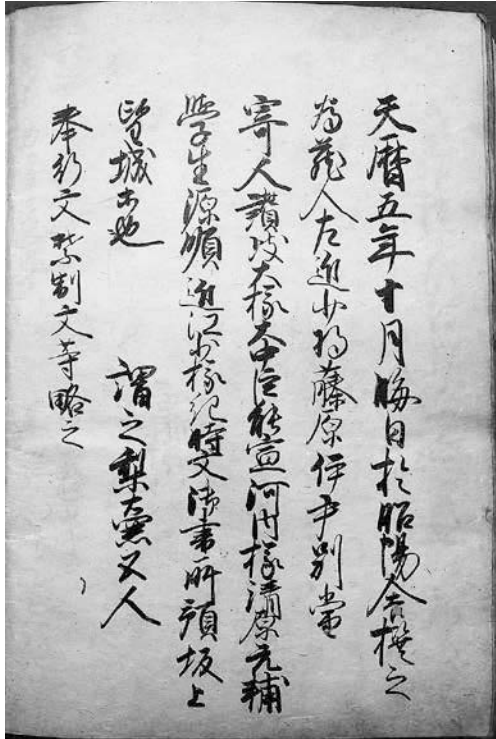 天暦五年十月晦日於昭陽舎撰之
為蔵人左近少将藤原伊尹別当
寄人讃岐大掾大中臣能宣河内掾清原元輔
学生源順近江少掾紀時文御書所預坂上
望城等也　謂之梨壺五人
奉行文禁制文等略之